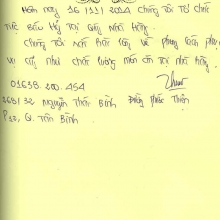 Hôm nay 16/11/2014 chúng tôi tổ chức
tiệc tại Nhà Hàng.
Chúng tôi rất hài lòng về phong cách phục
vụ cũng như chất lượng món ăn tại nhà hàng.
01638.200.454
268/32 Nguyễn Thái Bình Phúc Thiện
P12, Q. Tân Bình